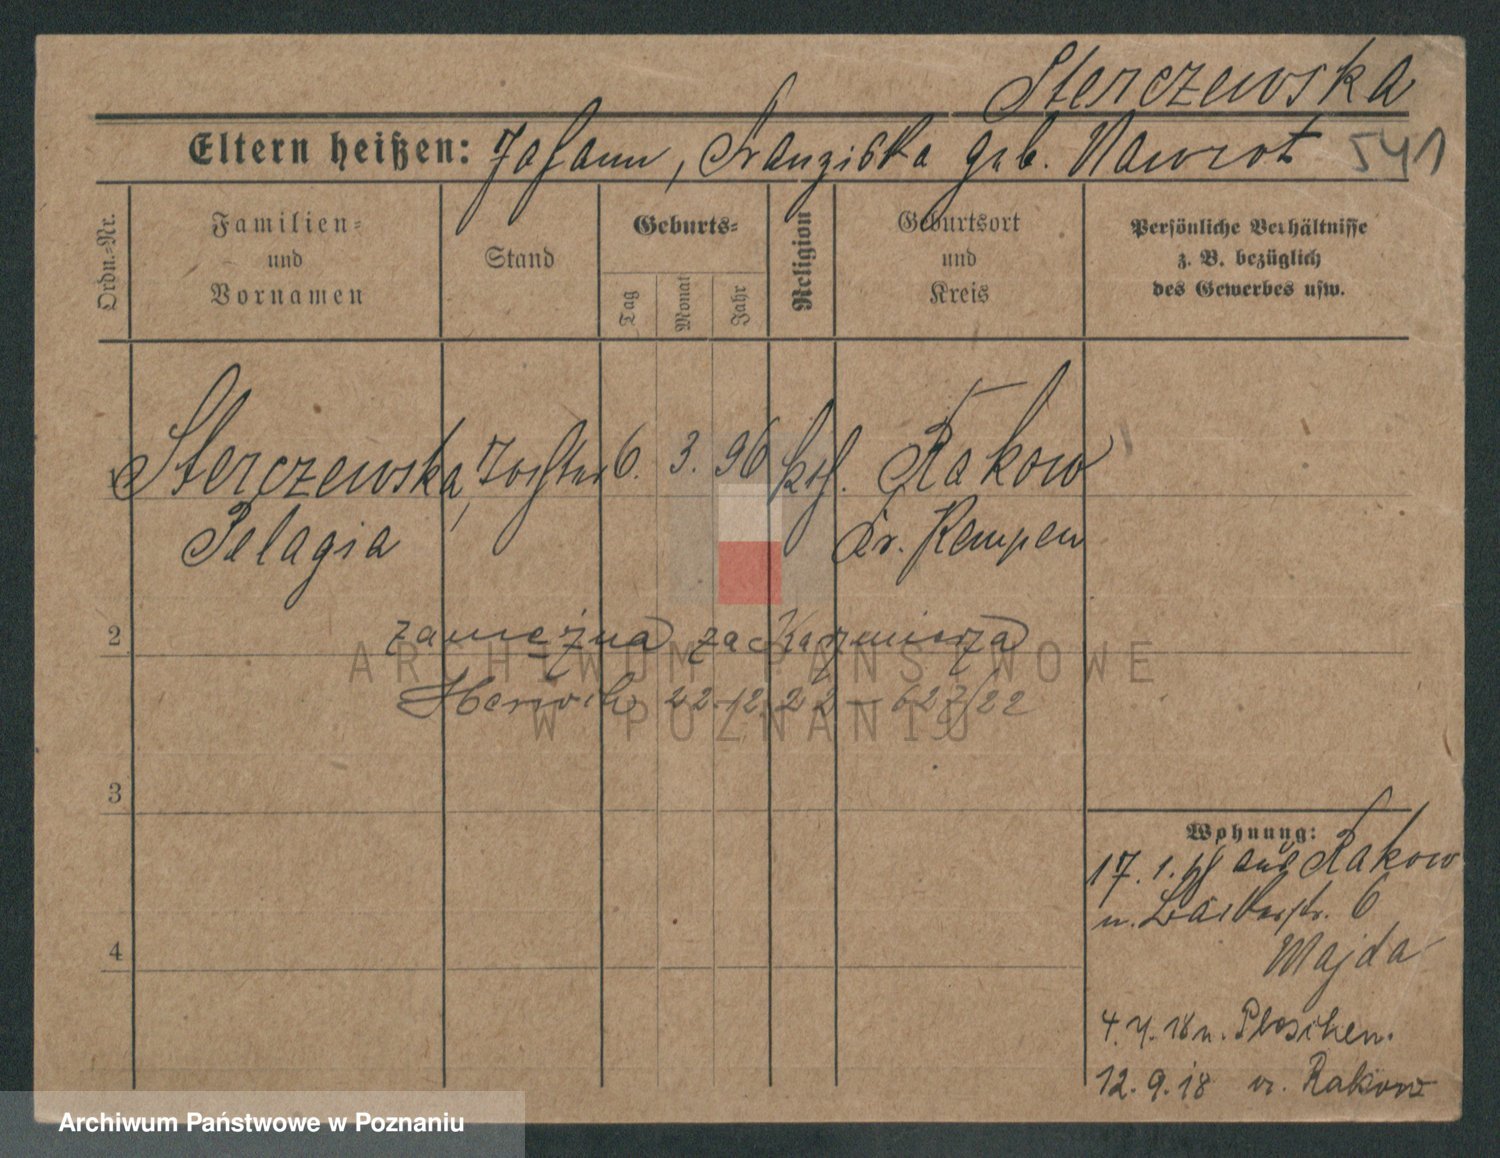 Sterczewska
Eltern heißen: Johann, Franziska geb. Nawrot 541
Ordn.-Nr.
Familien- und Vornamen
Stand
Geburts-
Tag Monat Jahr
Religion
Geburtsort und Kreis
Persönliche Verhältnisse z. B. bezüglich des Gewerbes usw.
1 Sterczewska, Tochter 6. 3. 96 kth. Rakow
Pelagia Kr. Kempen
2 zamężna za Kazmierza
22.12.22 – 627/22
3
4
Wohnung:
17.1.18 aus Rakow
n. 6
Majda
4.4.18 n. Pleschen.
12.9.18 v. Rakow
ARCHIWUM PAŃSTWOWE
W POZNANIU
Archiwum Państwowe w Poznaniu